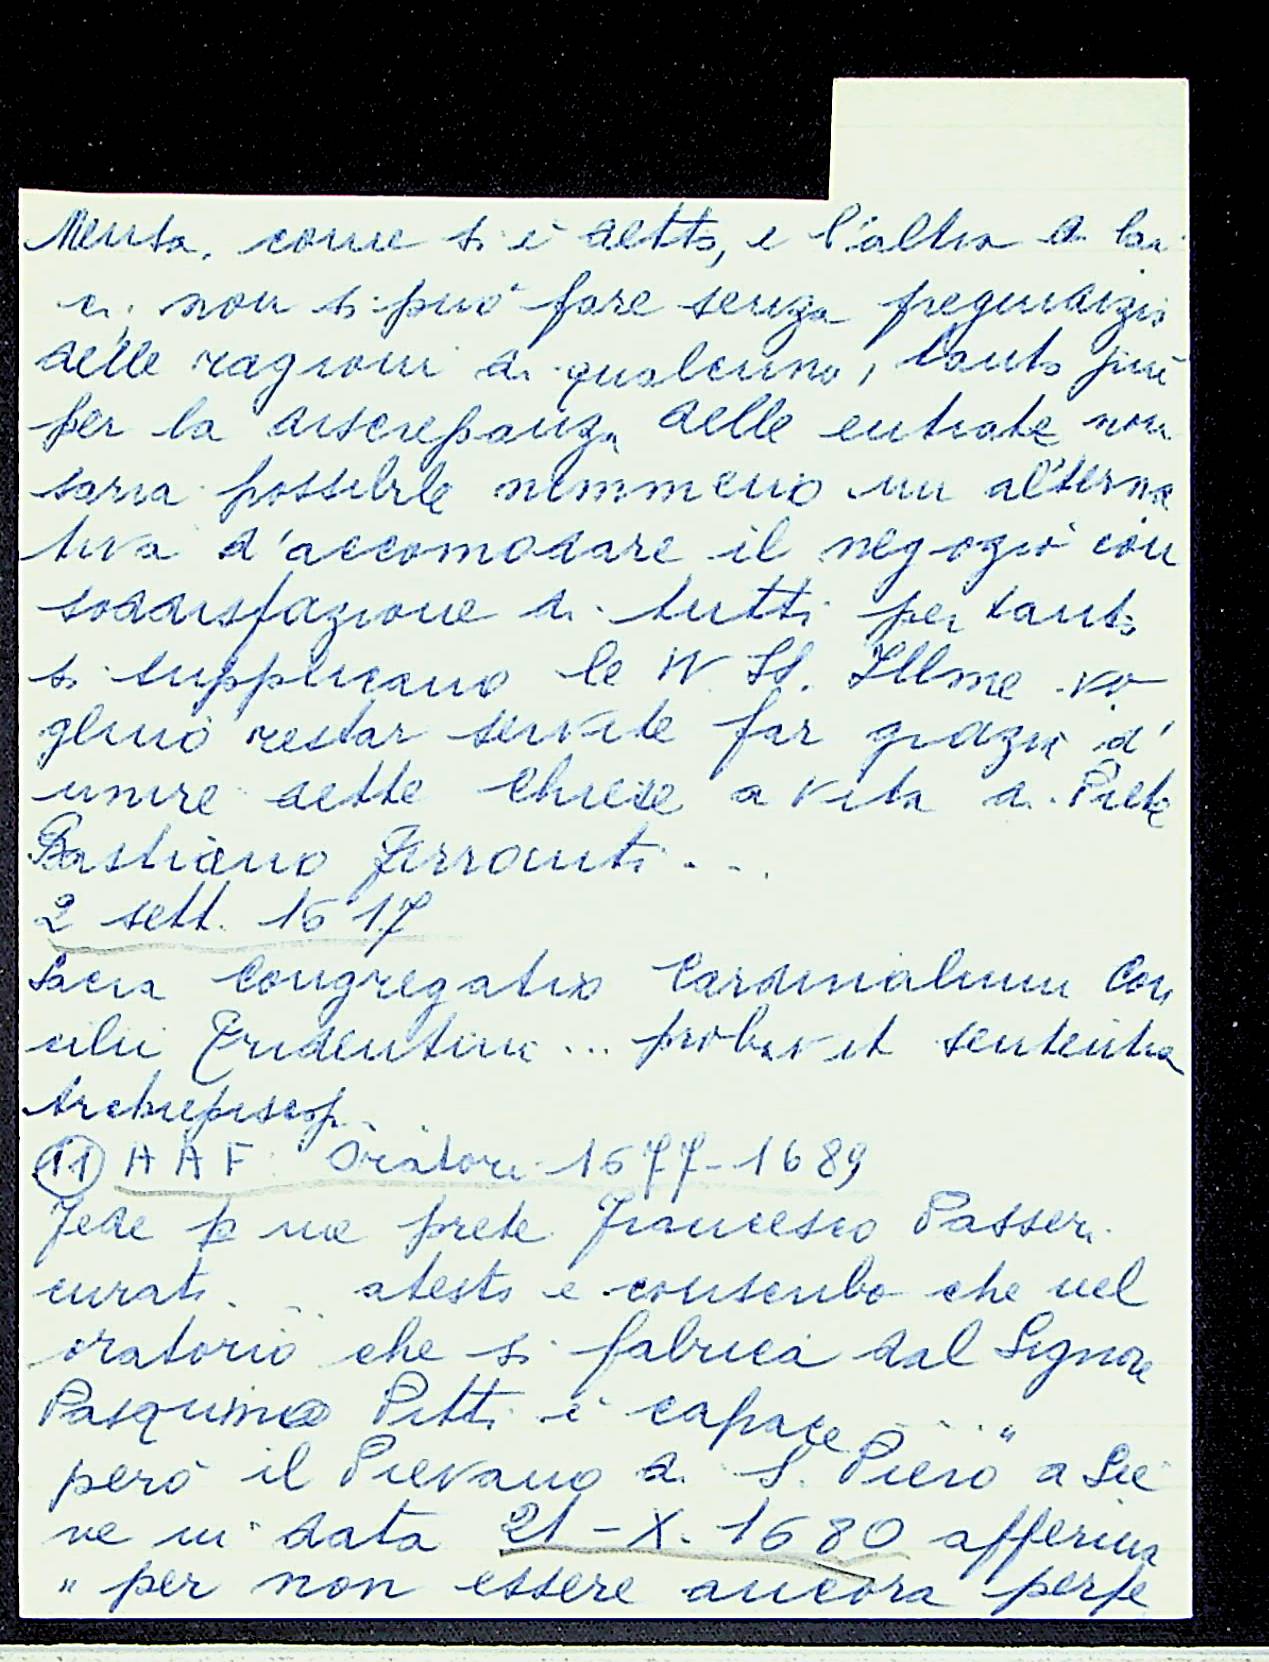 Mensa, come si è detto, e l'altra di lai
ci, non si può fare senza pregiudizio
delle ragioni di qualcuno, tanto più
per la discrepanza delle entrate non
saria possibile nemmeno un alterna
tiva d'accomodare il negozio con
soddisfazione di tutti per tanto
si supplicano le VV. SS. Illme vo
glino restar servite far grazia d'
unire dette Chiese a vita di Prete
Bastiano Ferranti...
2 sett. 1617
Sacra Congregatio Cardinalium Con
cilii Tridentini ... probavit sententia
Archiepiscop.
(11) AAF. Oratori 1677-1689
Fede p me prete Francesco Passeri
curato ... atesto e consento che nel
oratorio che si fabrica dal Signore
Pasquino Pitti è capace ...."
però il Pievano di S. Piero a Sie
ve in data 21-X-1680 afferma
" per non essere ancora perfe